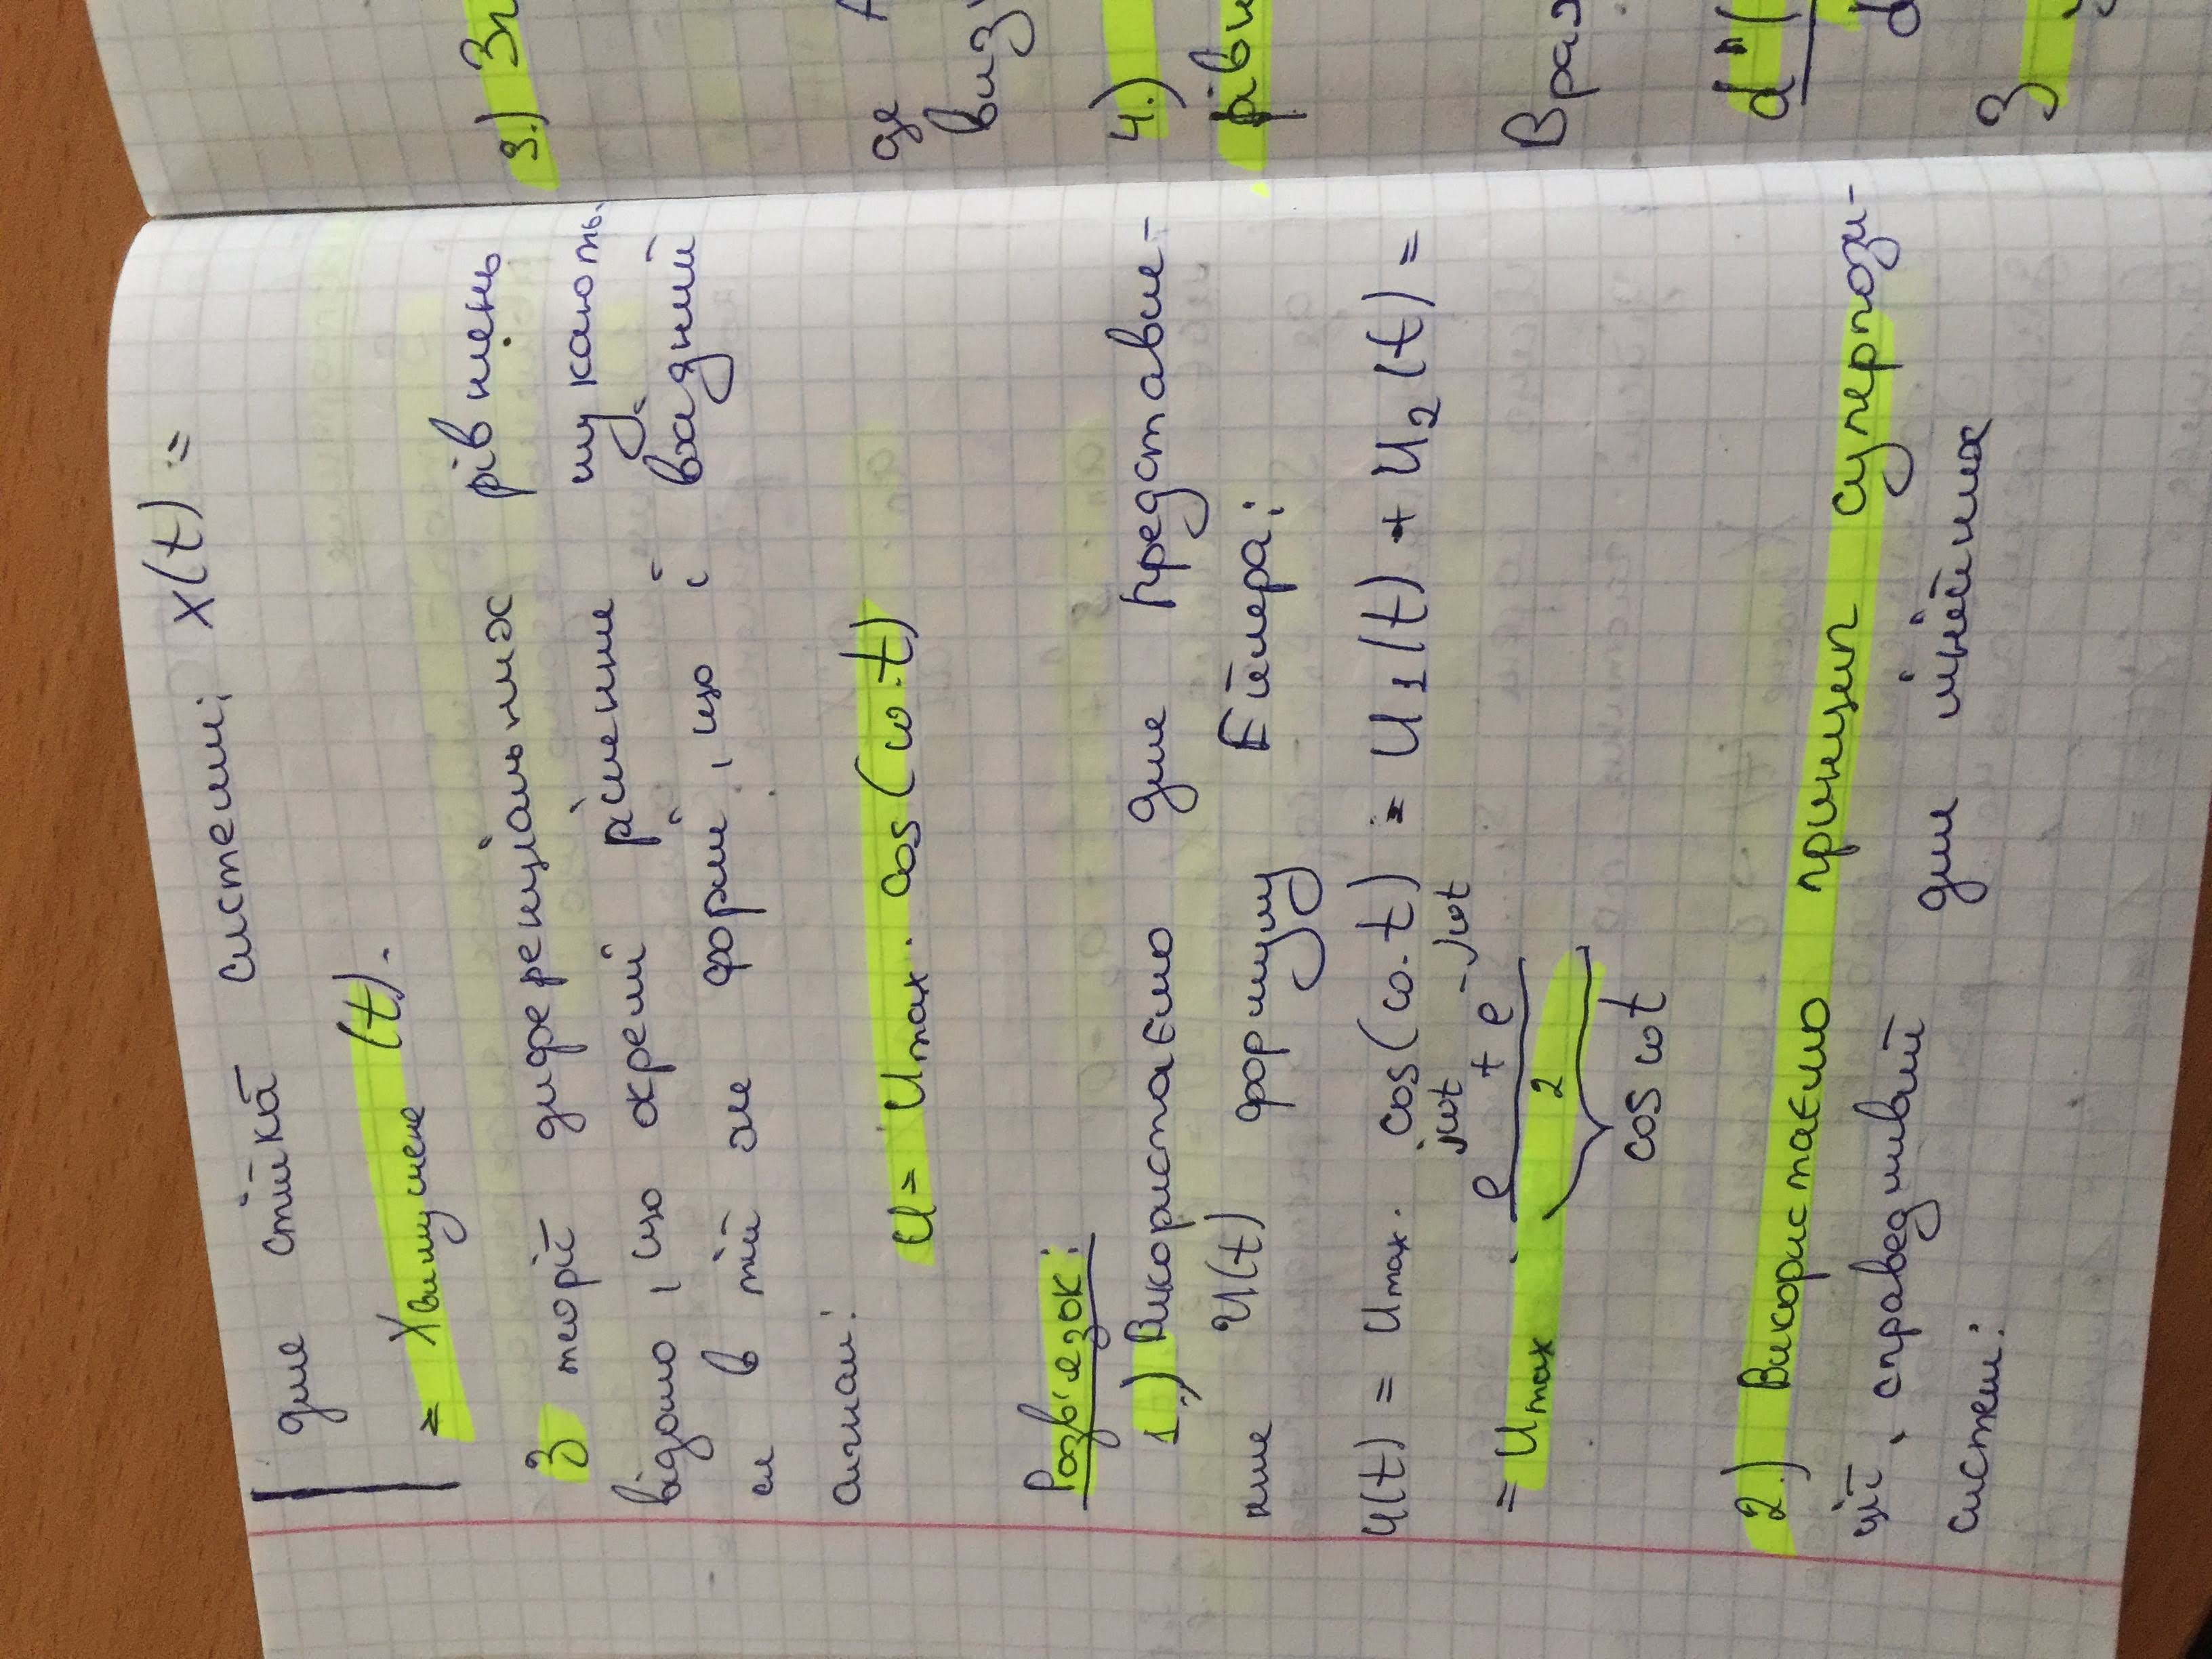 для стійкої системи; x(t) =
= Xвимушене (t).
З теорії диференціальних рівнянь
відомо, що окремі рішення шукають-
ся в тій же формі, що і вхідний
сигнал:
U = Umax · cos(ω·t)
Розв'язок:
1.) Використаємо для представле-
ння U(t) формулу Ейлера:
U(t) = Umax · cos(ω·t) = U1(t) + U2(t) =
= Umax · (e^jωt + e^-jωt) / 2
cos ωt
2.) Використаємо принцип суперпози-
ції, справедливий для лінійних
систем:
3.) Зг
де A
виз
4.)
рівн
Врах
d^n(
d
З